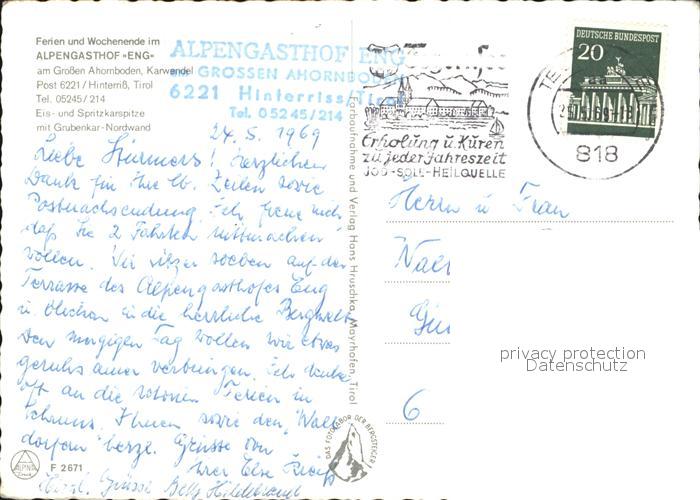 Ferien und Wochenende im
ALPENGASTHOF »ENG«
am Großen Ahornboden, Karwendel
Post 6221 / Hinterriß, Tirol
Tel. 05245 / 214
Eis- und Spritzkarspitze
mit Grubenkar-Nordwand
ALPENGASTHOF ENG
GROSSEN AHORNBODEN
6221 Hinterriss/Tirol
Tel. 05245/214
24. 5. 1969
Liebe Stürmers! Herzlichen
Dank für Ihre lb. Zeilen sowie
Postnachsendung. Ich freue mich
daß Sie 2 Fahrten mitmachen
wollen. Wir sitzen soeben auf der
Terrasse des Alpengasthofes Eng
u. blicken in die herrliche Bergwelt.
Den morgigen Tag wollen wir etwas
geruhsamer verbringen. Ich denke
oft an die schönen Ferien in
Schruns. Ihnen sowie den "Wall
dorfern" herzl. Grüsse von
Ihrer Else
Herzl. Grüsse Betty Hildebrand
ALPINA
Druck
F 2671
DAS FOTOLABOR DER BERGSTEIGER!
Farbaufnahme und Verlag Hans Hruschka, Mayrhofen, Tirol
Erholung u. Kuren
zu jeder Jahreszeit
JOD-SOLE-HEILQUELLE
DEUTSCHE BUNDESPOST
20
818
Herrn u Frau
6
privacy protection
Datenschutz